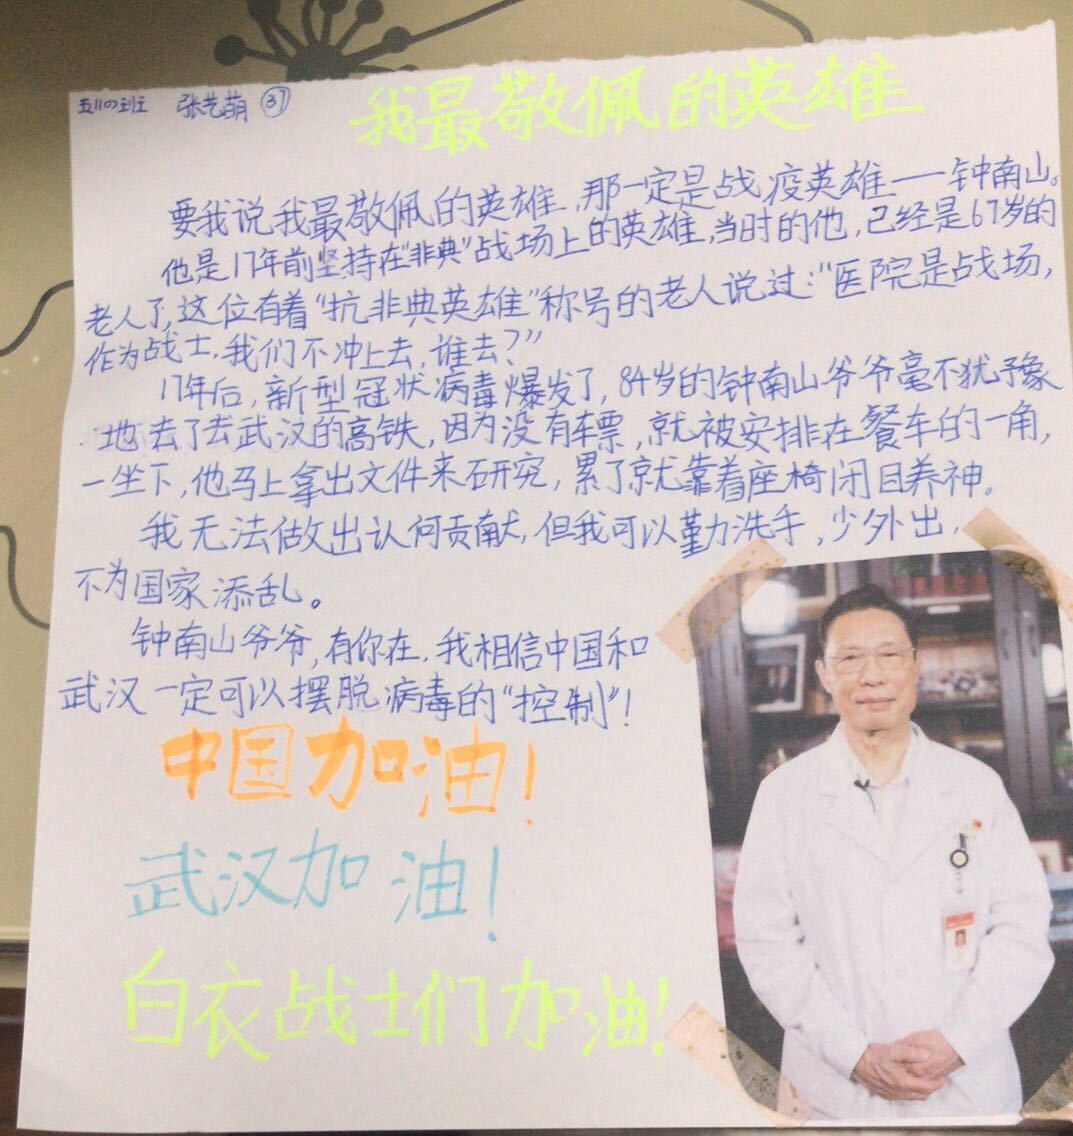 五(4)班 张艺萌 37
我最敬佩的英雄
要我说我最敬佩的英雄,那一定是战疫英雄——钟南山。
他是17年前坚持在"非典"战场上的英雄,当时的他,已经是67岁的
老人了,这位有着"抗非典英雄"称号的老人说过:"医院是战场,
作为战士,我们不冲上去,谁去?"
17年后,新型冠状病毒爆发了,84岁的钟南山爷爷毫不犹豫
地去了去武汉的高铁,因为没有车票,就被安排在餐车的一角,
一坐下,他马上拿出文件来研究,累了就靠着座椅闭目养神。
我无法做出认何贡献,但我可以勤力洗手,少外出,
不为国家添乱。
钟南山爷爷,有你在,我相信中国和
武汉一定可以摆脱病毒的"控制"!
中国加油!
武汉加油!
白衣战士们加油!